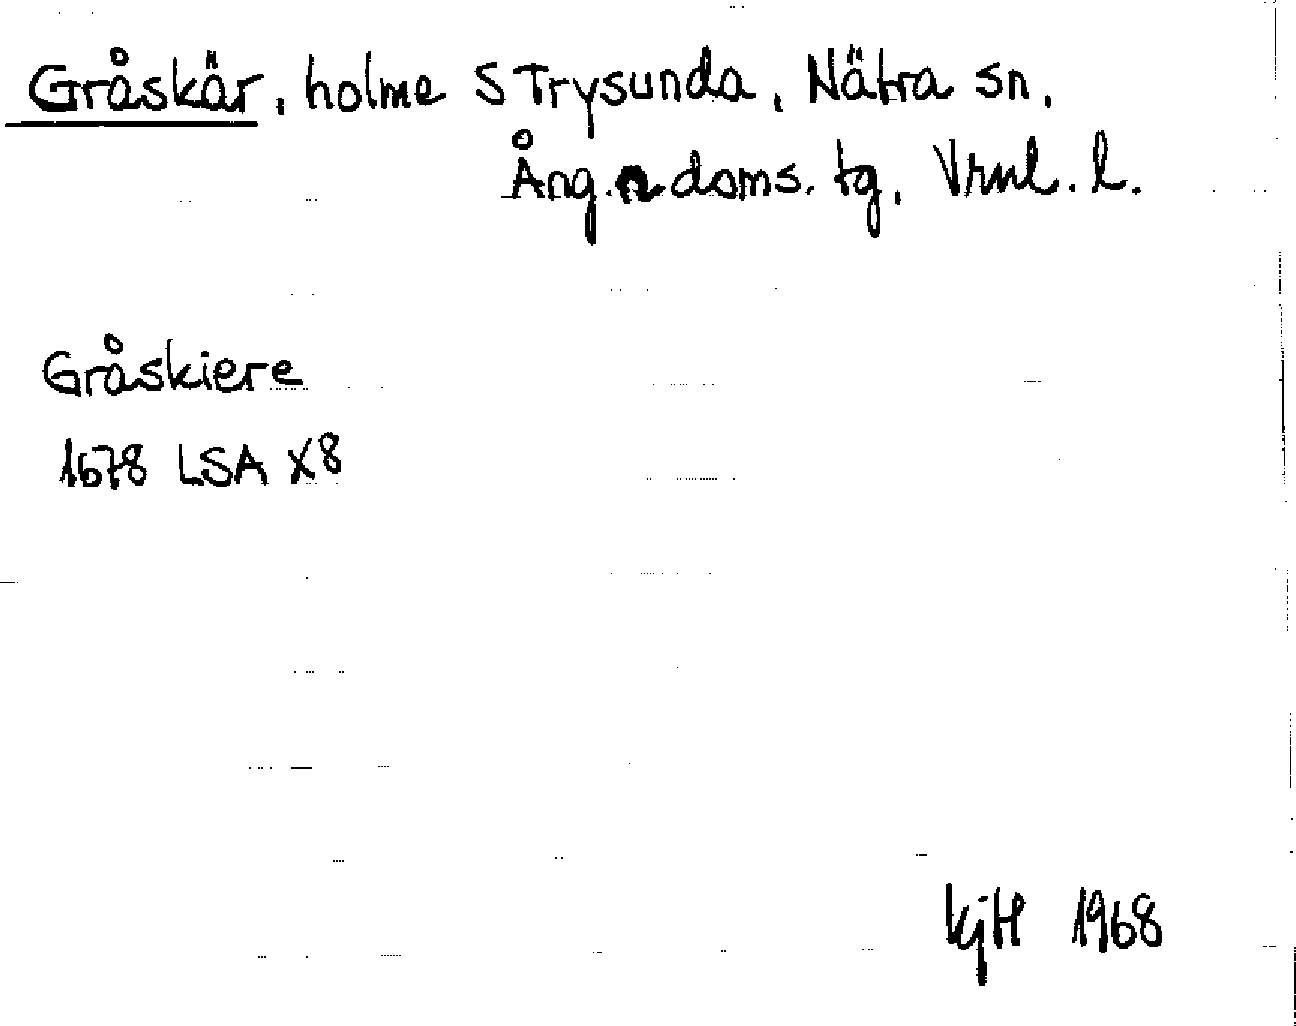 Gråskär, holme S Trysunda, Nätra sn,
Ång. n doms. tg, Vrnl. l.
Gråskiere
1678 LSA X8
KjH 1968